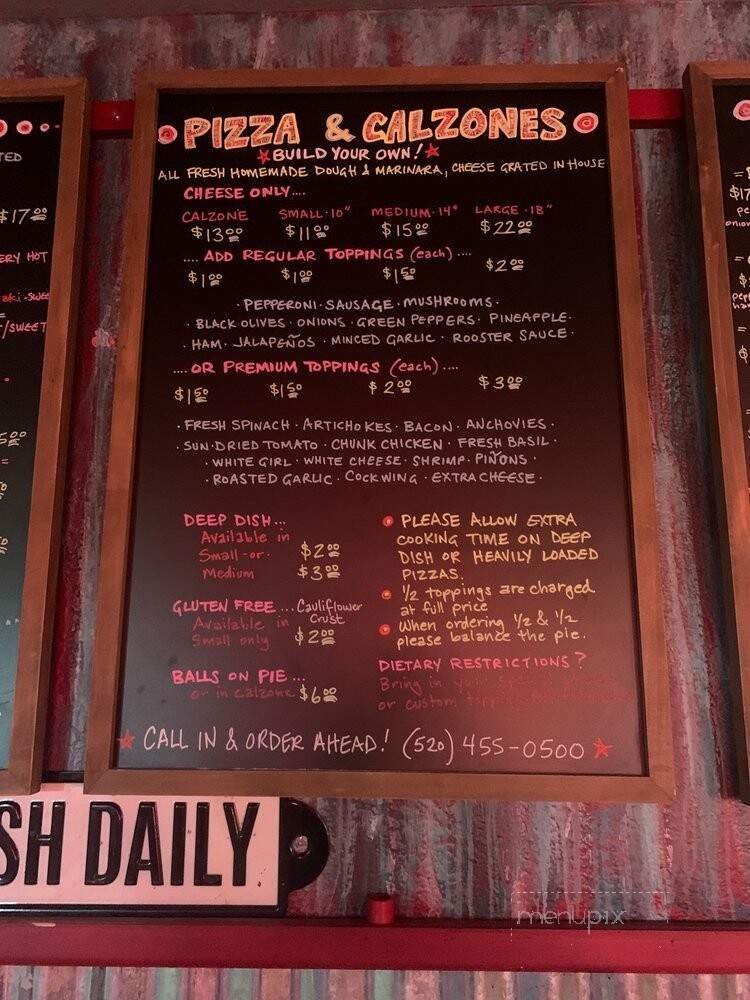 PIZZA & CALZONES
BUILD YOUR OWN!
ALL FRESH HOMEMADE DOUGH & MARINARA, CHEESE GRATED IN HOUSE
CHEESE ONLY....
CALZONE SMALL·10" MEDIUM·14" LARGE·18"
$13.00 $11.00 $15.00 $22.00
.... ADD REGULAR TOPPINGS (each) ....
$1.00 $1.00 $1.50 $2.00
·PEPPERONI·SAUSAGE·MUSHROOMS·
·BLACK OLIVES·ONIONS·GREEN PEPPERS·PINEAPPLE·
·HAM·JALAPEÑOS·MINCED GARLIC·ROOSTER SAUCE·
....OR PREMIUM TOPPINGS (each)....
$1.50 $1.50 $2.00 $3.00
·FRESH SPINACH·ARTICHOKES·BACON·ANCHOVIES·
·SUN·DRIED TOMATO·CHUNK CHICKEN·FRESH BASIL·
·WHITE GIRL·WHITE CHEESE·SHRIMP·PIÑONS·
·ROASTED GARLIC·COCKWING·EXTRA CHEESE·
DEEP DISH...
Available in
Small -or- $2.00
Medium $3.00
GLUTEN FREE ... Cauliflower
Crust
Available in
Small only $2.00
BALLS ON PIE ...
or in calzone $6.00
PLEASE ALLOW EXTRA
COOKING TIME ON DEEP
DISH OR HEAVILY LOADED
PIZZAS.
1/2 toppings are charged
at full price
When ordering 1/2 & 1/2
please balance the pie.
DIETARY RESTRICTIONS?
Bring in your
or custom
CALL IN & ORDER AHEAD! (520) 455-0500
$17.00
ERY HOT
/SWEET
SH DAILY
menupix